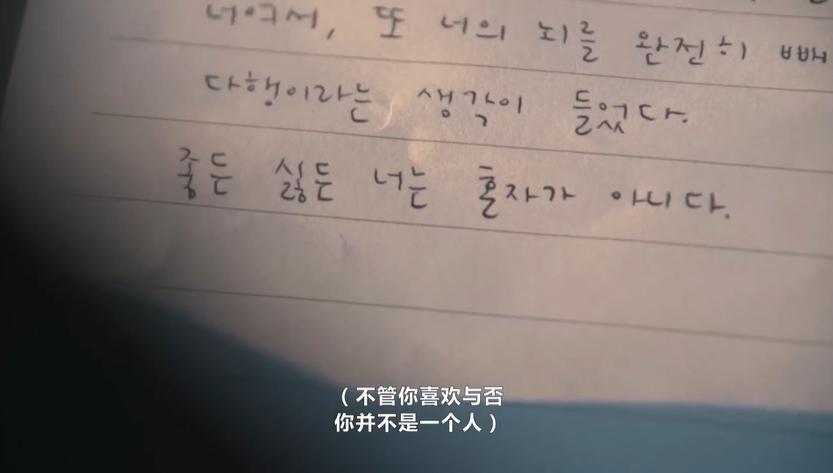 너여서, 또 너의 뇌를 완전히 빼
다행이라는 생각이 들었다.
좋든 싫든 너는 혼자가 아니다.
（不管你喜欢与否
你并不是一个人）